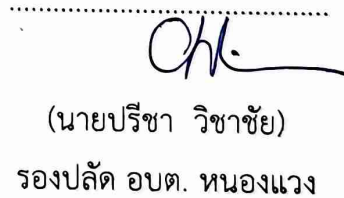 (นายปรีชา วิชาชัย)
รองปลัด อบต. หนองแวง